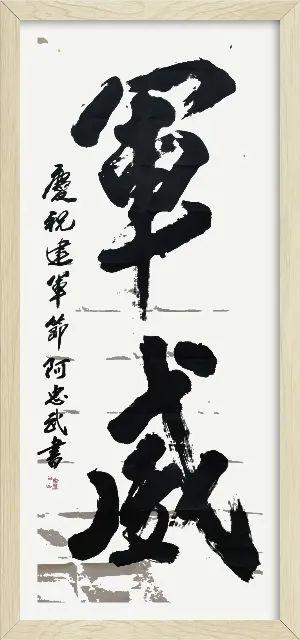 軍威
慶祝建軍節阿忠武書